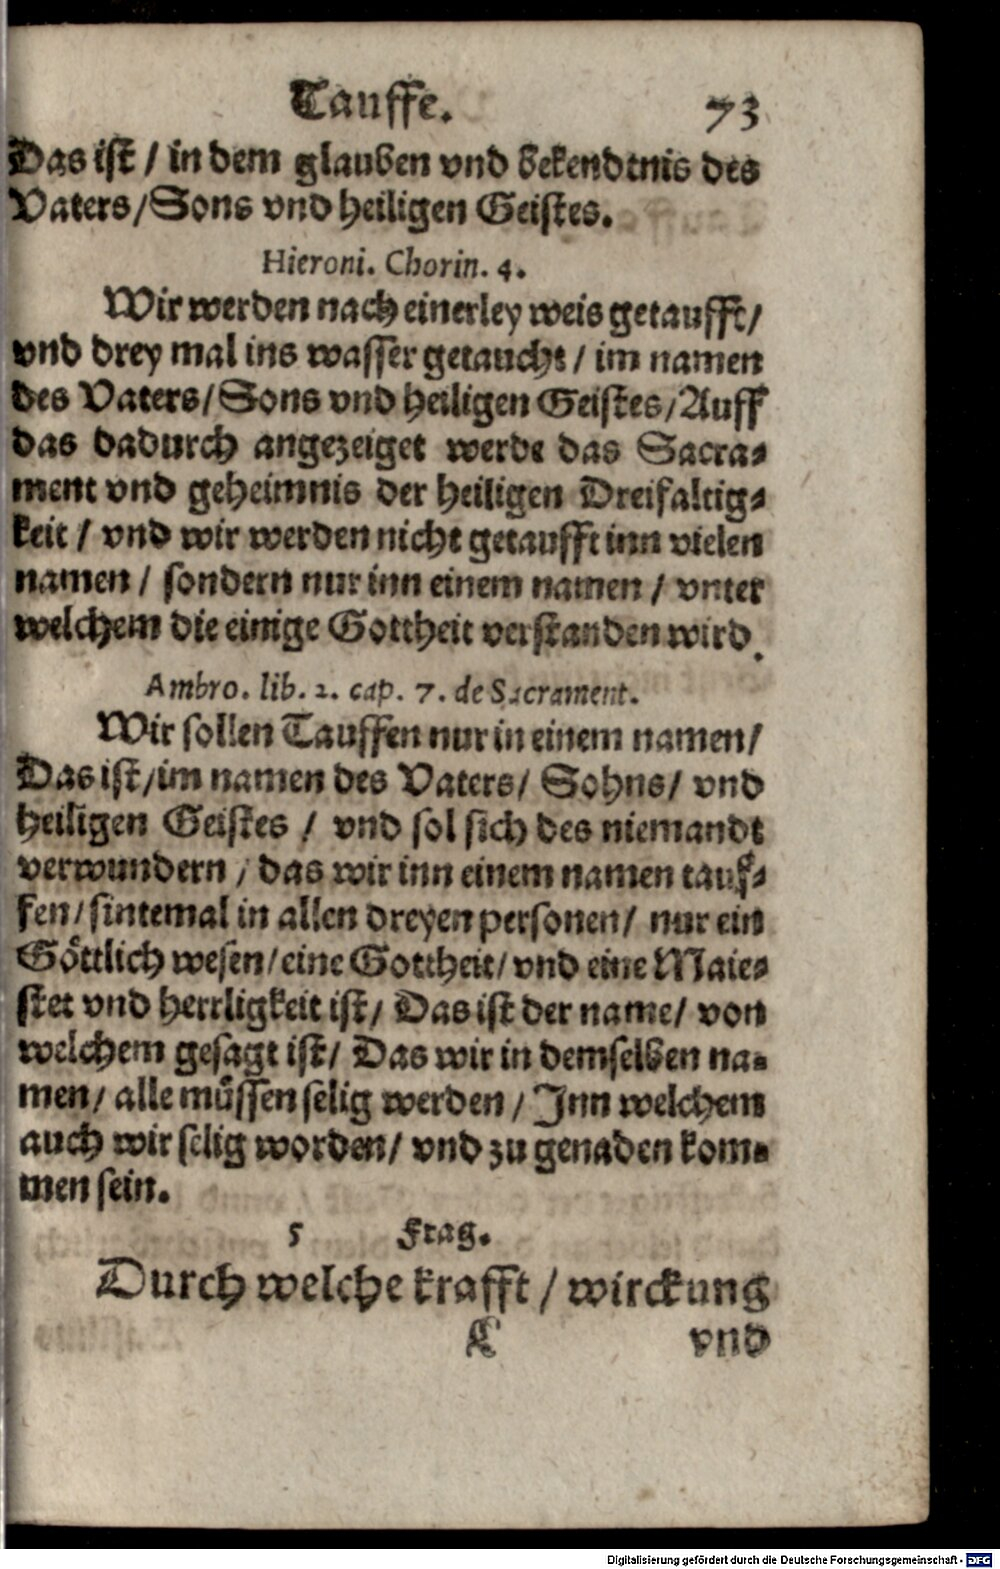 Tauffe. 73
Das ist / in dem glauben vnd bekendtnis des
Vaters/Sons vnd heiligen Geistes.
Hieroni. Chorin. 4.
Wir werden nach einerley weis getaufft/
vnd drey mal ins wasser getaucht / im namen
des Vaters/Sons vnd heiligen Geistes/Auff
das dadurch angezeiget werde das Sacra-
ment vnd geheimnis der heiligen Dreifaltig-
keit / vnd wir werden nicht getaufft inn vielen
namen / sondern nur inn einem namen / vnter
welchem die einige Gottheit verstanden wird.
Ambro. lib. 2. cap. 7. de Sacrament.
Wir sollen Tauffen nur in einem namen/
Das ist/im namen des Vaters/ Sohns/ vnd
heiligen Geistes / vnd sol sich des niemandt
verwundern / das wir inn einem namen tauf-
fen/ sintemal in allen dreyen personen/ nur ein
Göttlich wesen/eine Gottheit/ vnd eine Maie-
stet vnd herrligkeit ist/ Das ist der name/ von
welchem gesagt ist/ Das wir in demselben na-
men/ alle müssen selig werden / Jnn welchem
auch wir selig worden/ vnd zu genaden kom-
men sein.
5 Frag.
Durch welche krafft / wirckung
K vnd
Digitalisierung gefördert durch die Deutsche Forschungsgemeinschaft - DFG